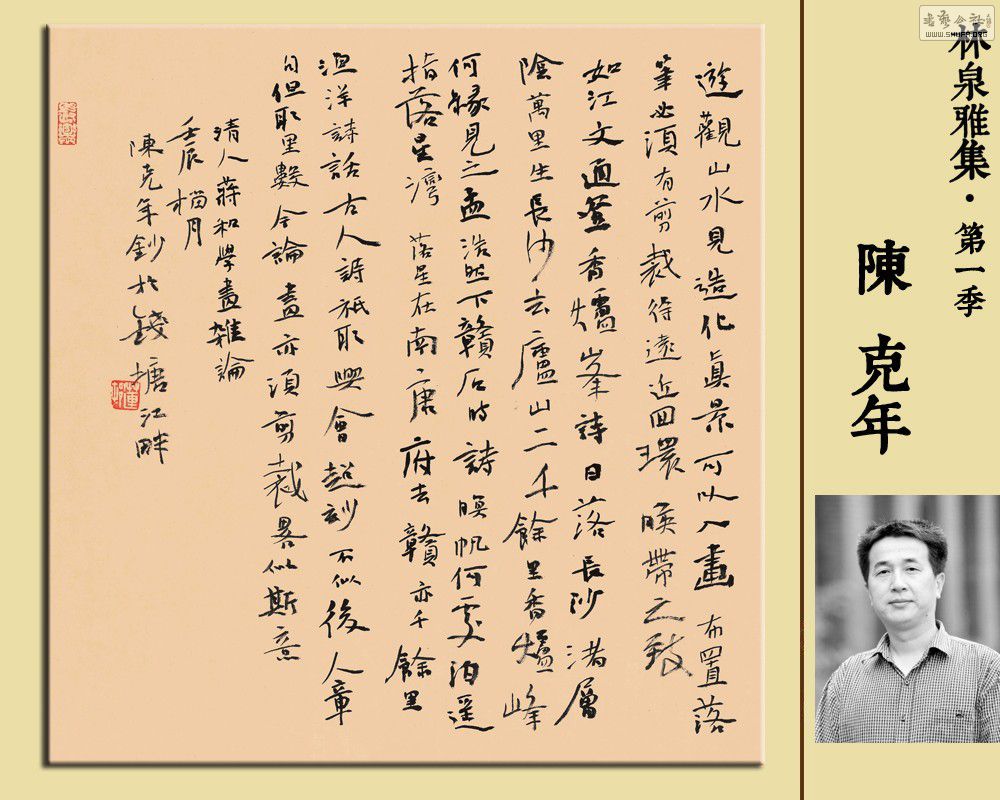 遊觀山水見造化真景可以入畫布置落
筆必須有剪裁得遠近回環映帶之致
如江文通登香爐峯詩日落長沙渚層
陰萬里生長沙去廬山二千餘里香爐峰
何緣見之孟浩然下贛石時詩暝帆何處泊遥
指落星灣落星在南康府去贛亦千餘里
詩話古人詩祇取興會超妙不似後人章
句但取里數今論畫亦須剪裁畧似斯意
清人蔣和學畫雜論
壬辰月
陳克年鈔於錢塘江畔
林泉雅集·第一季
陳克年
書藝公社
WWW.SHUFA.ORG